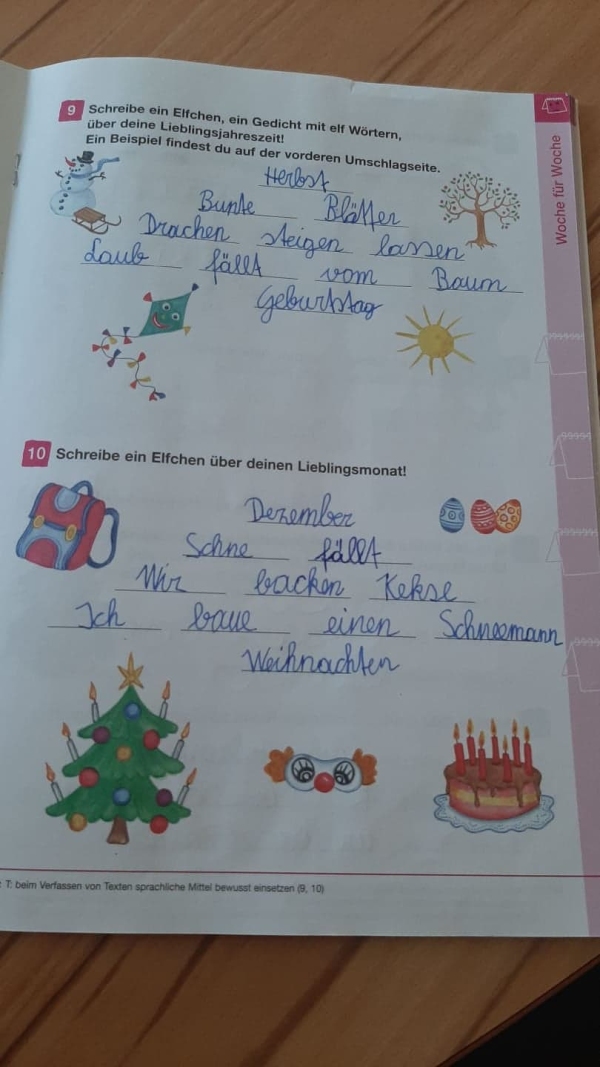 9 Schreibe ein Elfchen, ein Gedicht mit elf Wörtern,
über deine Lieblingsjahreszeit!
Ein Beispiel findest du auf der vorderen Umschlagseite.
Herbst
Bunte Blätter
Drachen steigen lassen
Laub fällt vom Baum
Geburtstag
Woche für Woche
10 Schreibe ein Elfchen über deinen Lieblingsmonat!
Dezember
Schne fällt
Wir backen Kekse
Ich baue einen Schneemann
Weihnachten
: T: beim Verfassen von Texten sprachliche Mittel bewusst einsetzen (9, 10)